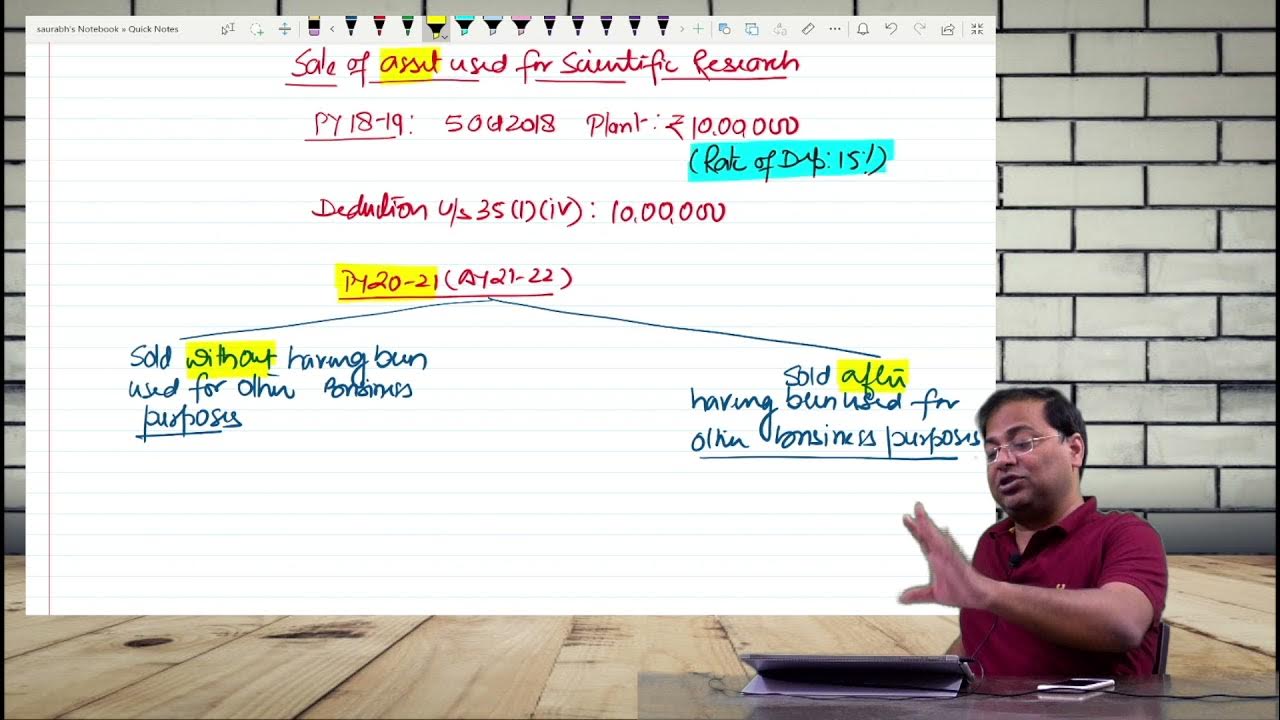 saurabh's Notebook » Quick Notes
Sale of asset used for Scientific Research
PY 18-19: 5 Oct 2018 Plant: ₹10,00,000
(Rate of Dep: 15%)
Deduction u/s 35(1)(iv): 10,00,000
PY20-21 (AY21-22)
Sold without having been
used for other Bonsiness
purposes
Sold after
having been used for
other bonsiness purposes